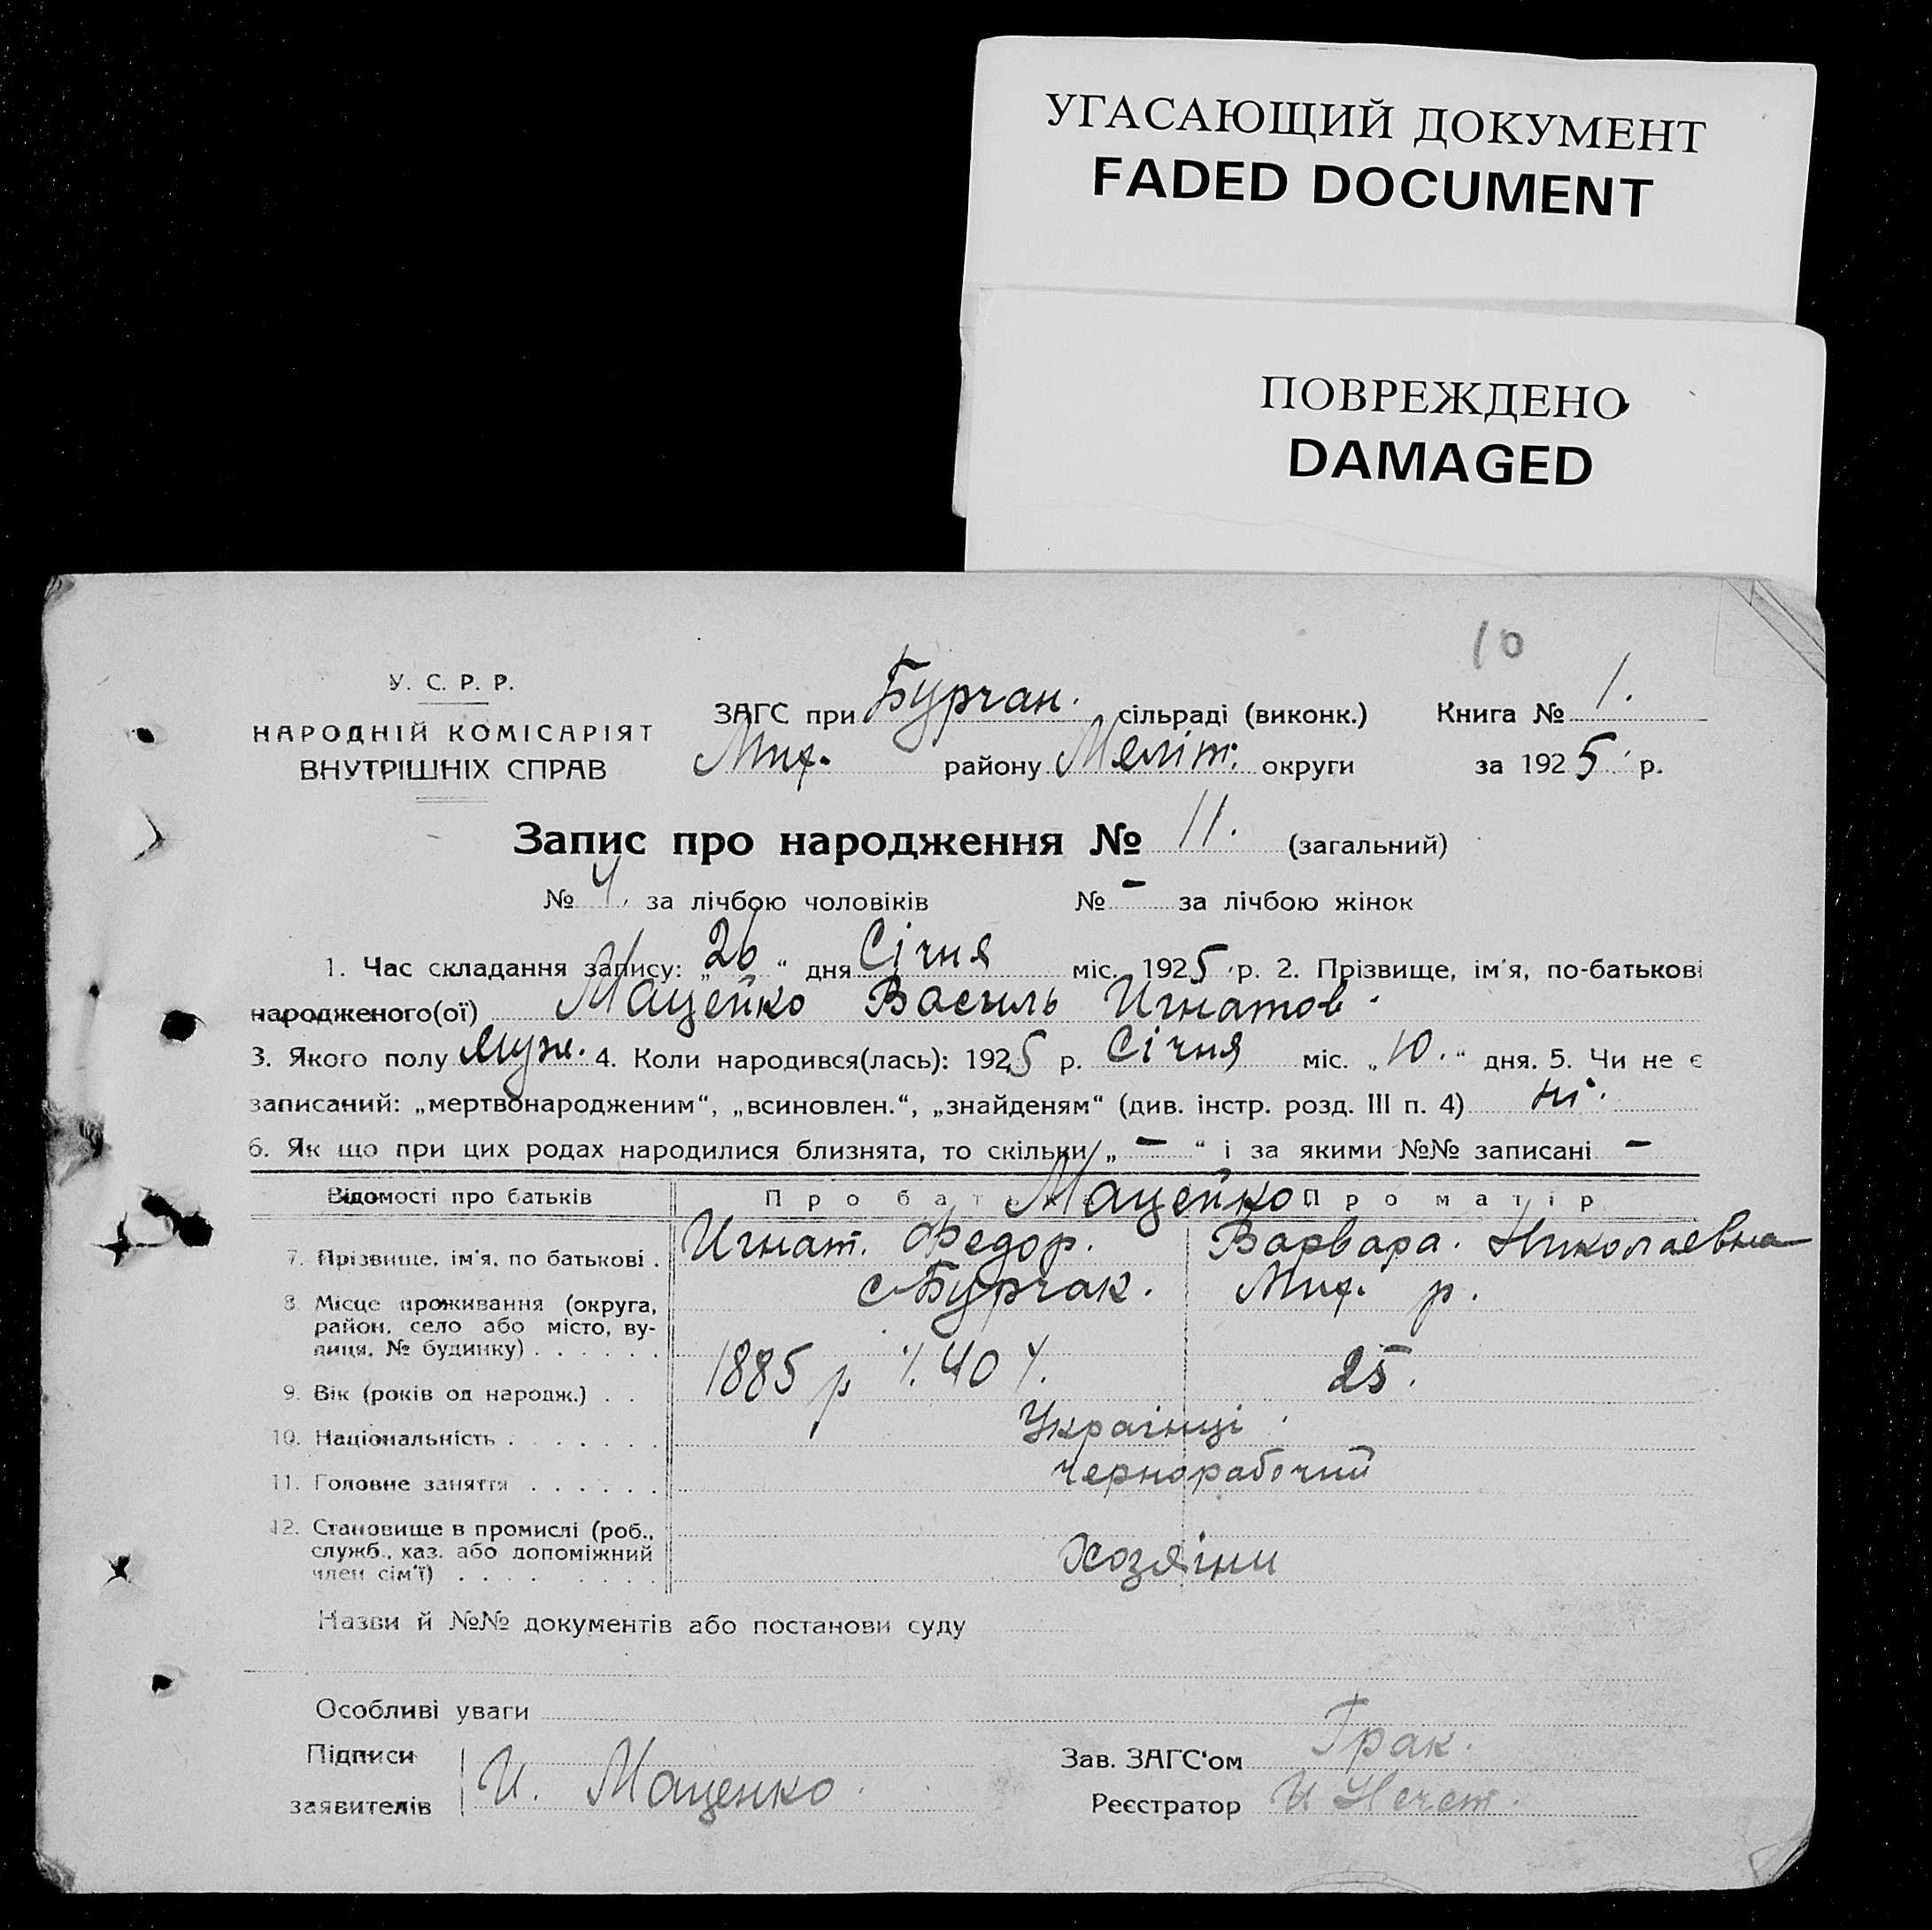 УГАСАЮЩИЙ ДОКУМЕНТ
FADED DOCUMENT
ПОВРЕЖДЕНО
DAMAGED
10
У. С. Р. Р.
НАРОДНІЙ КОМІСАРІЯТ
ВНУТРІШНІХ СПРАВ
ЗАГС при Бурчан. сільраді (виконк.) Книга № 1.
Мих. району Меліт. округи за 1925 р.
Запис про народження № 11. (загальний)
№ 4. за лічбою чоловіків № - за лічбою жінок
1. Час складання запису: „26“ дня Січня міс. 1925 р. 2. Прізвище, ім'я, по-батькові
народженого(ої) Мацейко Василь Игнатов.
3. Якого полу муж. 4. Коли народився(лась): 1925 р. Січня міс. „10.“ дня. 5. Чи не є
записаний: „мертвонародженим“, „всиновлен.“, „знайденям“ (див. інстр. розд. III п. 4) ні.
6. Як що при цих родах народилися близнята, то скільки „-“ і за якими №№ записані -
Відомості про батьків Про бат Мацейко Про матір
7. Прізвище, ім'я, по батькові . Игнат. Федор. Варвара. Николаевна
8. Місце проживання (округа, с Бурчак. Мих. р.
район, село або місто, ву-
лиця, № будинку) . . . . . .
9. Вік (років од народж.) . . 1885 р 40 25.
10. Національність . . . . . . . Українці
11. Головне заняття . . . . . . чернорабочий
12. Становище в промислі (роб.,
служб., хаз. або допоміжний Хозяїни
член сім'ї) . . . . . . . .
Назви й №№ документів або постанови суду
Особливі уваги
Підписи Зав. ЗАГС'ом Грак.
заявителів И. Маценко. Реєстратор И